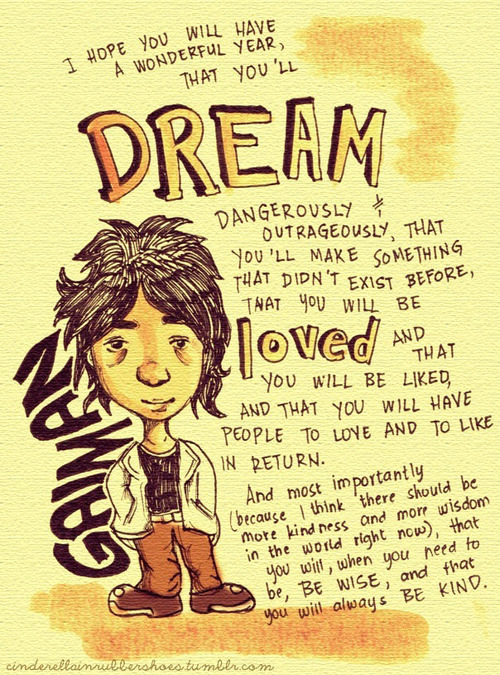 I HOPE YOU WILL HAVE
A WONDERFUL YEAR,
THAT YOU'LL
DREAM
DANGEROUSLY &
OUTRAGEOUSLY, THAT
YOU'LL MAKE SOMETHING
THAT DIDN'T EXIST BEFORE,
THAT YOU WILL BE
loved AND
THAT
YOU WILL BE LIKED,
AND THAT YOU WILL HAVE
PEOPLE TO LOVE AND TO LIKE
IN RETURN.
And most importantly
(because I think there should be
more kindness and more wisdom
in the world right now), that
you will, when you need to
be, BE WISE, and that
you will always BE KIND.
GAIMAN
cinderellainrubbershoes.tumblr.com